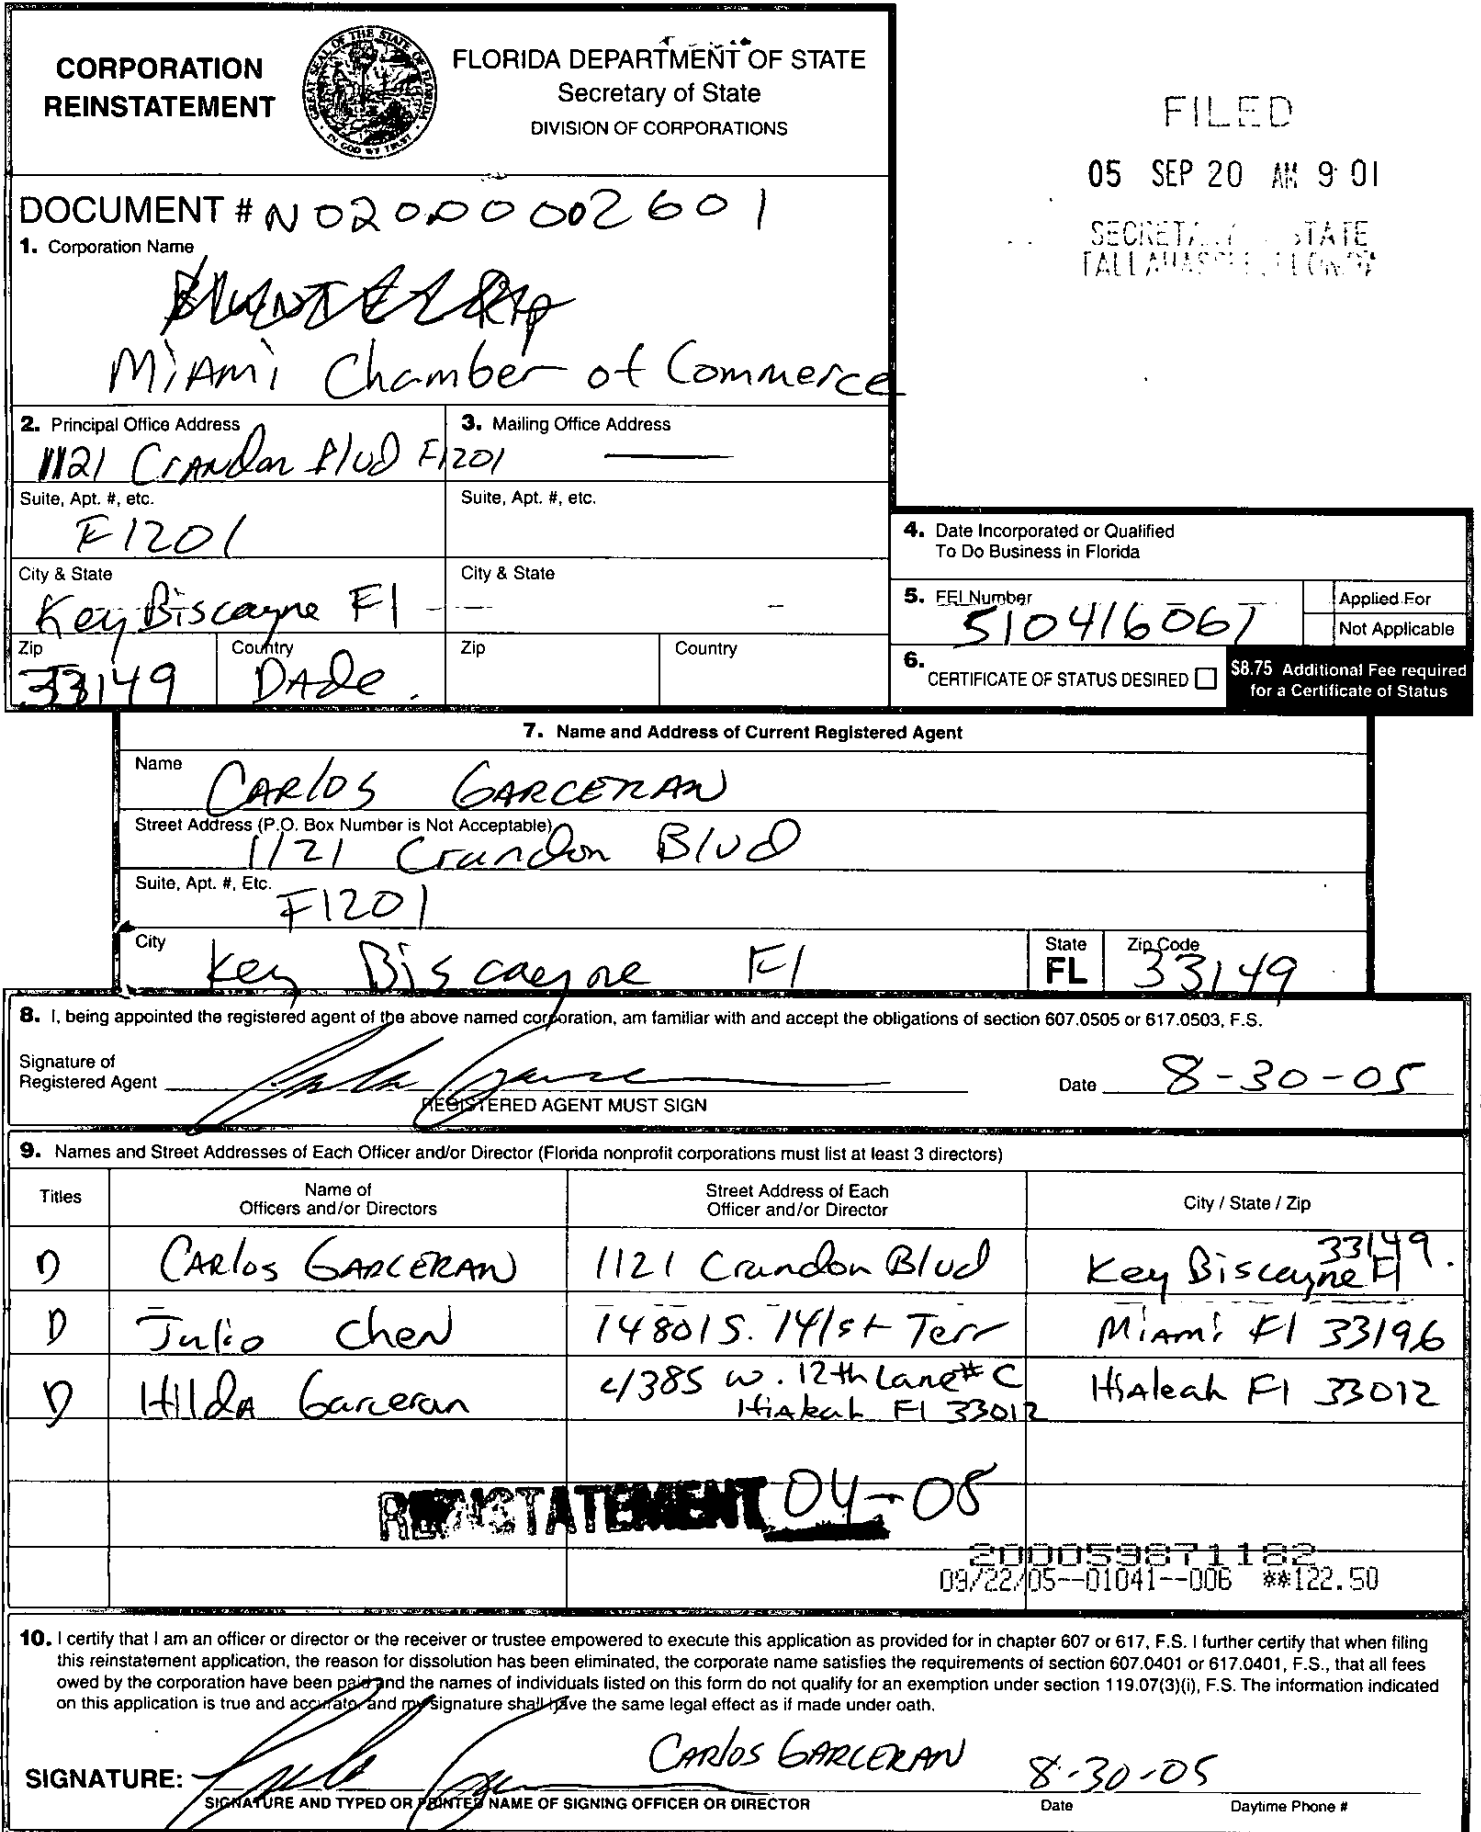 CORPORATION
REINSTATEMENT
GREAT SEAL OF THE STATE OF FLORIDA
IN GOD WE TRUST
FLORIDA DEPARTMENT OF STATE
Secretary of State
DIVISION OF CORPORATIONS
FILED
05 SEP 20 AM 9:01
SECRETARY STATE
TALLAHASSEE, FLORIDA
DOCUMENT # N02000002601
1. Corporation Name
Miami Chamber of Commerce
2. Principal Office Address
1121 Crandon Blvd F1201
3. Mailing Office Address
Suite, Apt. #, etc.
F1201
Suite, Apt. #, etc.
City & State
Key Biscayne Fl
City & State
Zip
33149
Country
DADe.
Zip
Country
4. Date Incorporated or Qualified
To Do Business in Florida
5. FEI Number
510416067
Applied For
Not Applicable
6. CERTIFICATE OF STATUS DESIRED
$8.75 Additional Fee required
for a Certificate of Status
7. Name and Address of Current Registered Agent
Name
CARlos GARCERAN
Street Address (P.O. Box Number is Not Acceptable)
1121 Crandon Blvd
Suite, Apt. #, Etc.
F1201
City
Key Biscayne Fl
State
FL
Zip Code
33149
8. I, being appointed the registered agent of the above named corporation, am familiar with and accept the obligations of section 607.0505 or 617.0503, F.S.
Signature of
Registered Agent
REGISTERED AGENT MUST SIGN
Date 8-30-05
9. Names and Street Addresses of Each Officer and/or Director (Florida nonprofit corporations must list at least 3 directors)
Titles
Name of
Officers and/or Directors
Street Address of Each
Officer and/or Director
City / State / Zip
D CARlos GARCERAN 1121 Crandon Blvd Key Biscayne Fl 33149.
D Julio Chen 14801 S. 141st Terr Miami Fl 33196
D HIldA Garceran 4385 W. 12th Lane # C
Hialeah Fl 33012
HiAleah Fl 33012
REINSTATEMENT 04-05
200059871182
09/22/05--01041--006 **122.50
10. I certify that I am an officer or director or the receiver or trustee empowered to execute this application as provided for in chapter 607 or 617, F.S. I further certify that when filing
this reinstatement application, the reason for dissolution has been eliminated, the corporate name satisfies the requirements of section 607.0401 or 617.0401, F.S., that all fees
owed by the corporation have been paid and the names of individuals listed on this form do not qualify for an exemption under section 119.07(3)(i), F.S. The information indicated
on this application is true and accurate, and my signature shall have the same legal effect as if made under oath.
CARlos GARCERAN 8-30-05
SIGNATURE:
SIGNATURE AND TYPED OR PRINTED NAME OF SIGNING OFFICER OR DIRECTOR
Date
Daytime Phone #